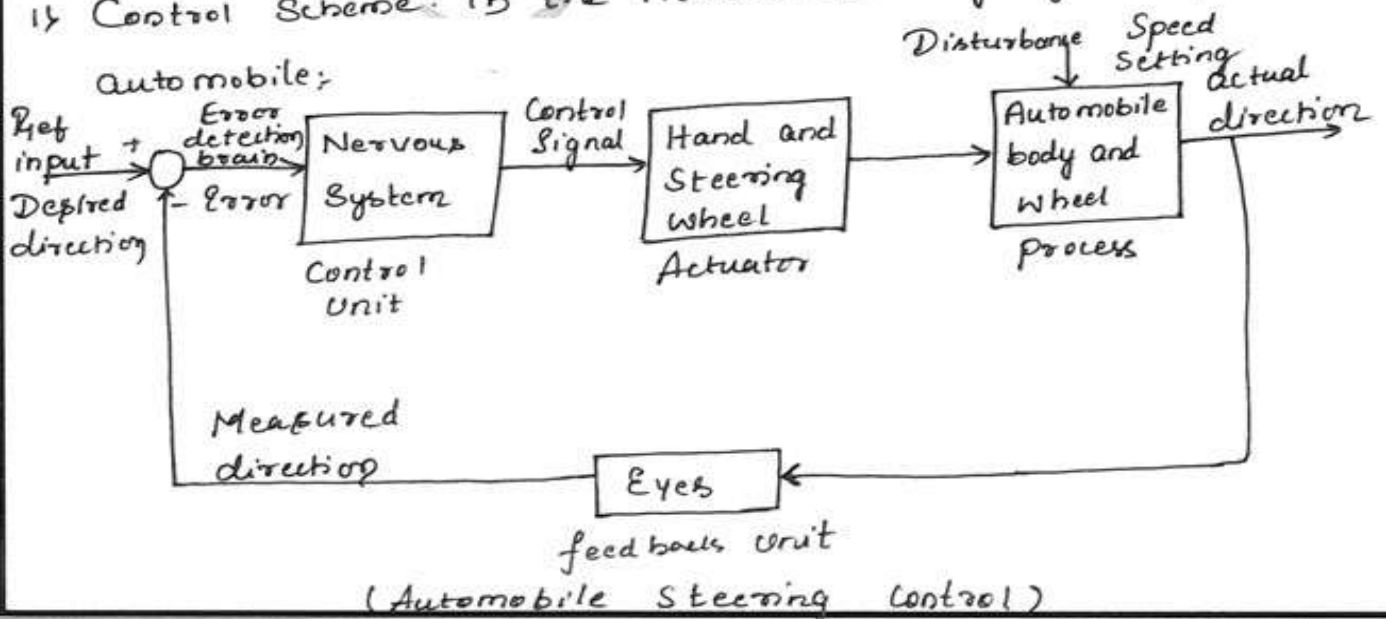 1) Control Scheme. in the
automobile:-
Disturbance
Speed
Setting
actual
direction
Ref
input +
Desired
direction
Error
detection
brain
- Error
Nervous
System
Control
Unit
Control
Signal
Hand and
Steering
wheel
Actuator
Automobile
body and
wheel
Process
Measured
direction
Eyes
feedback unit
(Automobile Steering Control)